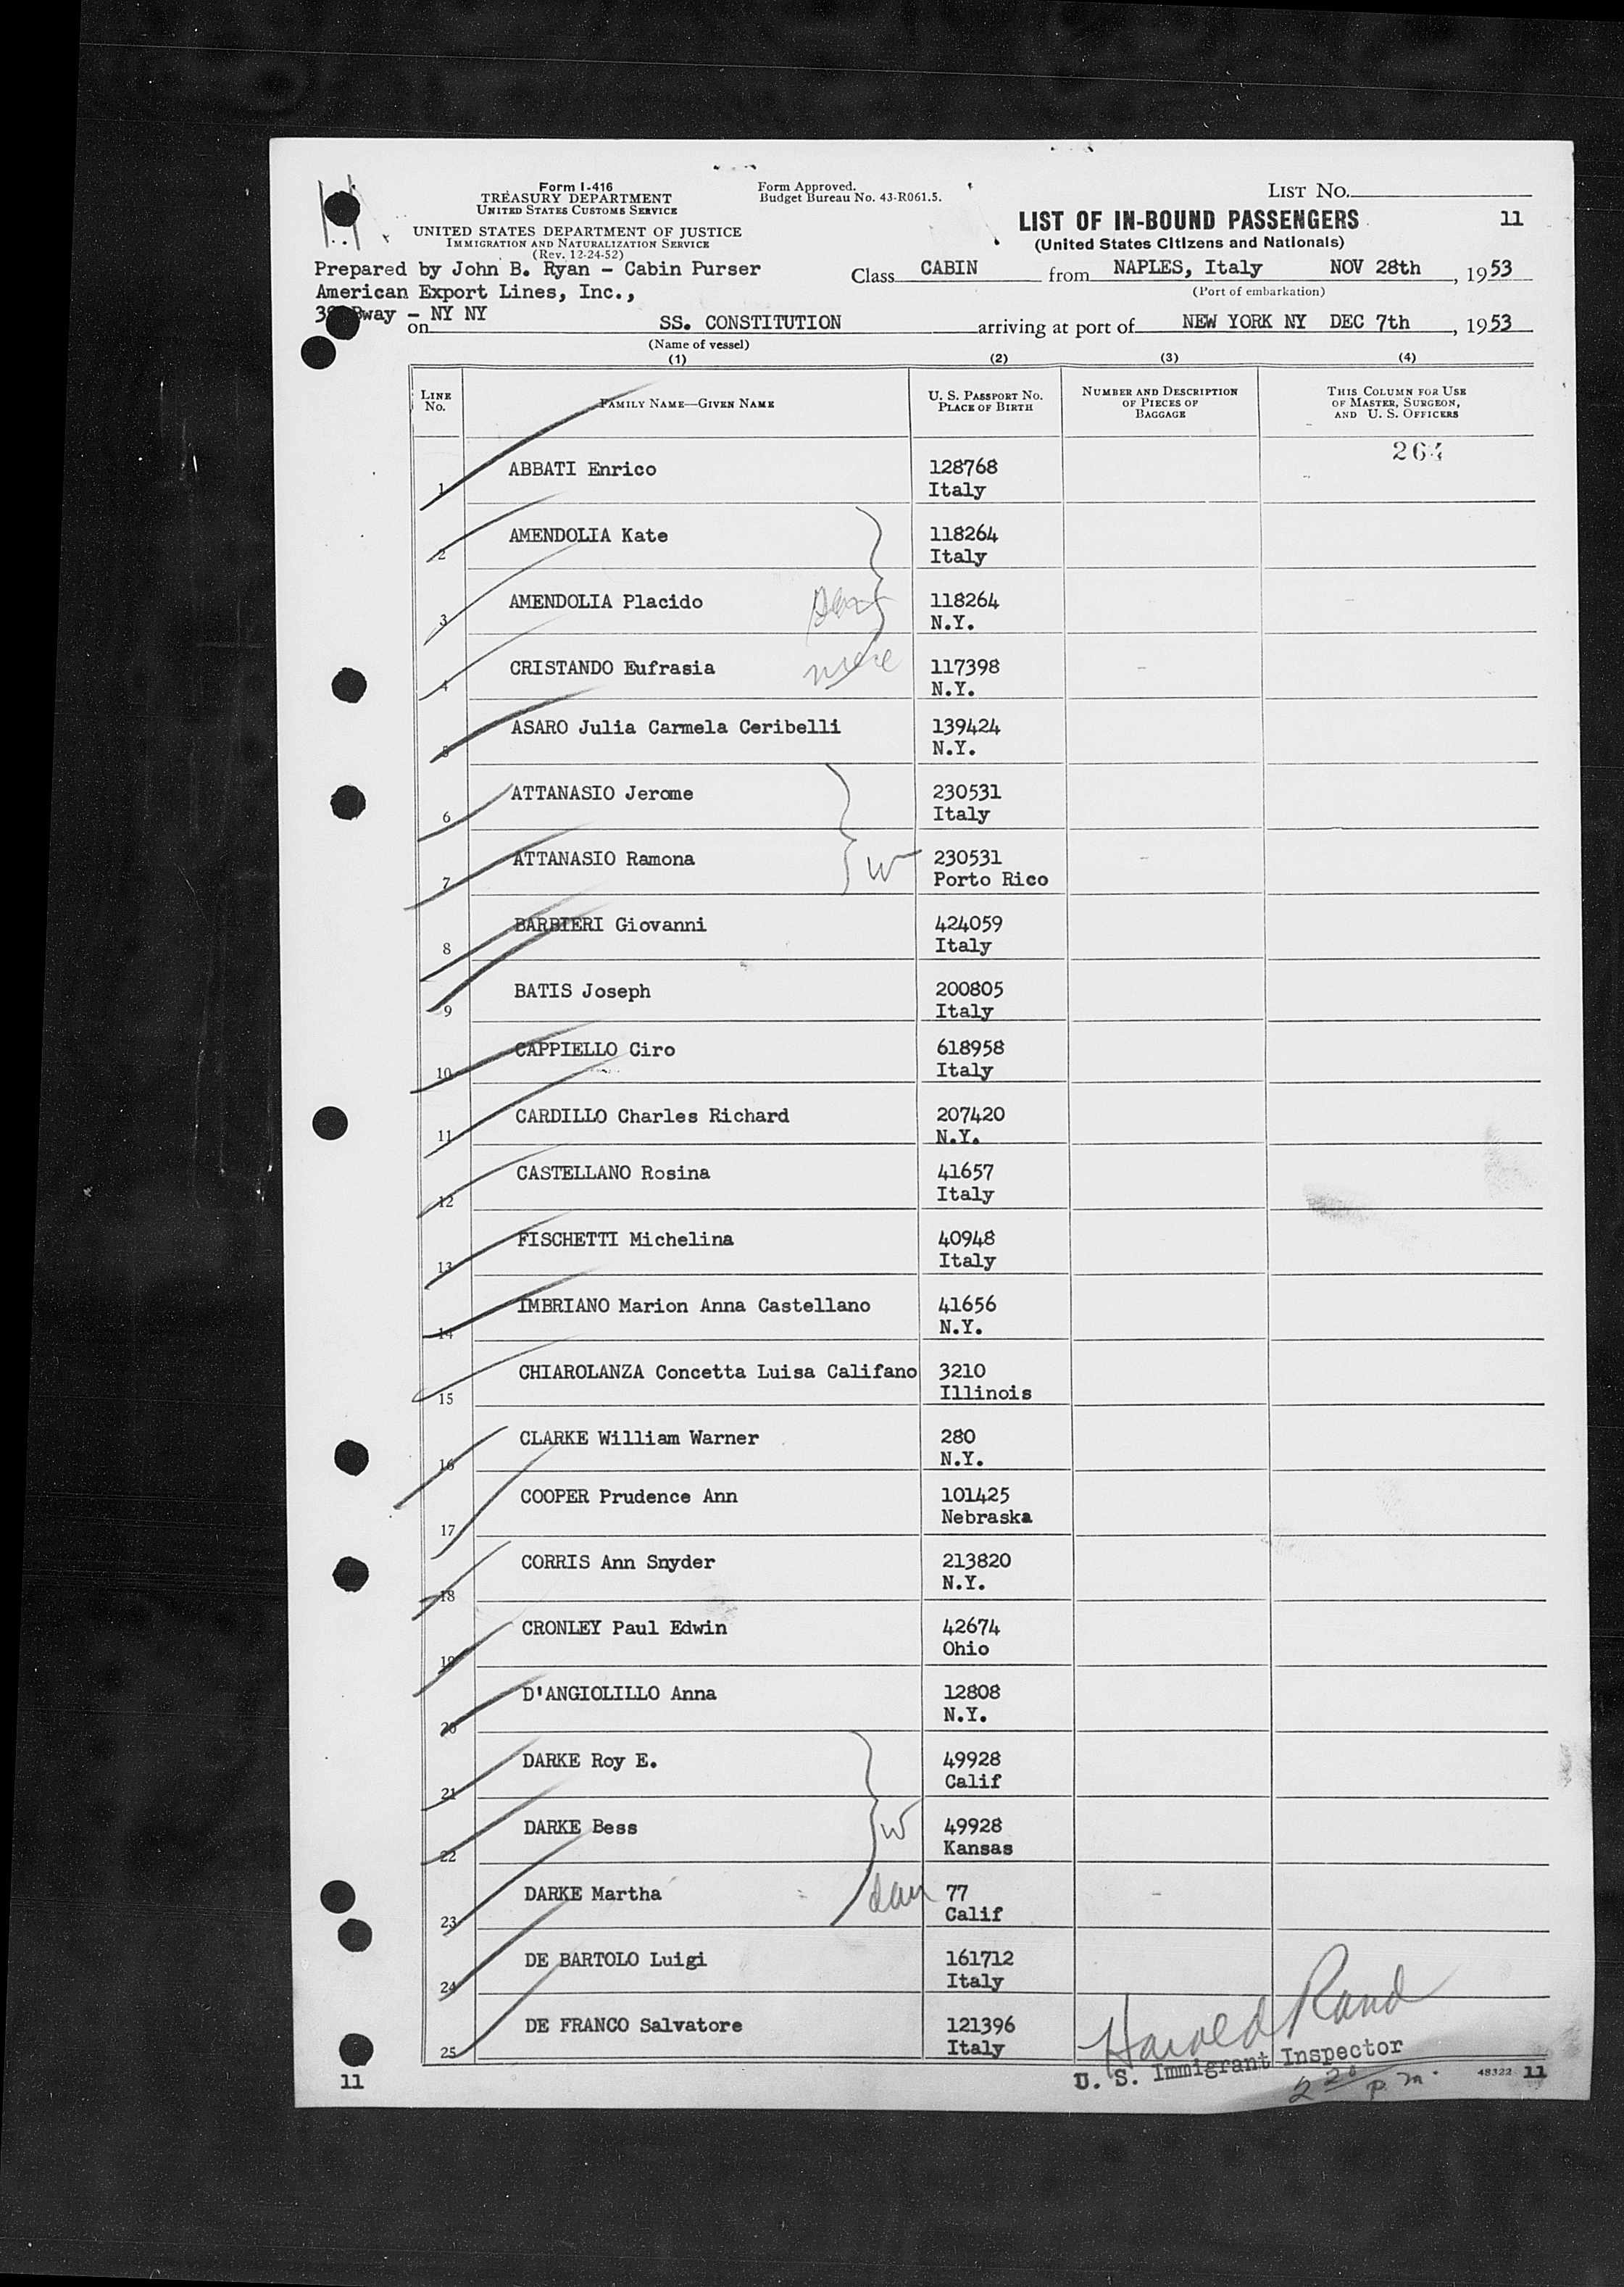 Form I-416
TREASURY DEPARTMENT
UNITED STATES CUSTOMS SERVICE
UNITED STATES DEPARTMENT OF JUSTICE
IMMIGRATION AND NATURALIZATION SERVICE
(Rev. 12-24-52)
Form Approved.
Budget Bureau No. 43-R061.5.
LIST NO.
LIST OF IN-BOUND PASSENGERS 11
(United States Citizens and Nationals)
Prepared by John B. Ryan - Cabin Purser
American Export Lines, Inc.,
Bway - NY NY
Class CABIN from NAPLES, Italy NOV 28th, 1953
(Port of embarkation)
on SS. CONSTITUTION arriving at port of NEW YORK NY DEC 7th, 1953
(Name of vessel)
(1) (2) (3) (4)
LINE No. FAMILY NAME—GIVEN NAME U. S. PASSPORT NO. PLACE OF BIRTH NUMBER AND DESCRIPTION OF PIECES OF BAGGAGE THIS COLUMN FOR USE OF MASTER, SURGEON, AND U. S. OFFICERS
1 ABBATI Enrico 128768
Italy
2 AMENDOLIA Kate 118264
Italy
3 AMENDOLIA Placido 118264
N.Y.
4 CRISTANDO Eufrasia niece 117398
N.Y.
5 ASARO Julia Carmela Ceribelli 139424
N.Y.
6 ATTANASIO Jerome 230531
Italy
7 ATTANASIO Ramona W 230531
Porto Rico
8 BARBIERI Giovanni 424059
Italy
9 BATIS Joseph 200805
Italy
10 CAPPIELLO Ciro 618958
Italy
11 CARDILLO Charles Richard 207420
N.Y.
12 CASTELLANO Rosina 41657
Italy
13 FISCHETTI Michelina 40948
Italy
14 IMBRIANO Marion Anna Castellano 41656
N.Y.
15 CHIAROLANZA Concetta Luisa Califano 3210
Illinois
16 CLARKE William Warner 280
N.Y.
17 COOPER Prudence Ann 101425
Nebraska
18 CORRIS Ann Snyder 213820
N.Y.
19 CRONLEY Paul Edwin 42674
Ohio
20 D'ANGIOLILLO Anna 12808
N.Y.
21 DARKE Roy E. 49928
Calif
22 DARKE Bess W 49928
Kansas
23 DARKE Martha dau 77
Calif
24 DE BARTOLO Luigi 161712
Italy
25 DE FRANCO Salvatore 121396
Italy
Harold Rand
U. S. Immigrant Inspector
2 20 p.m.
11 48322 11